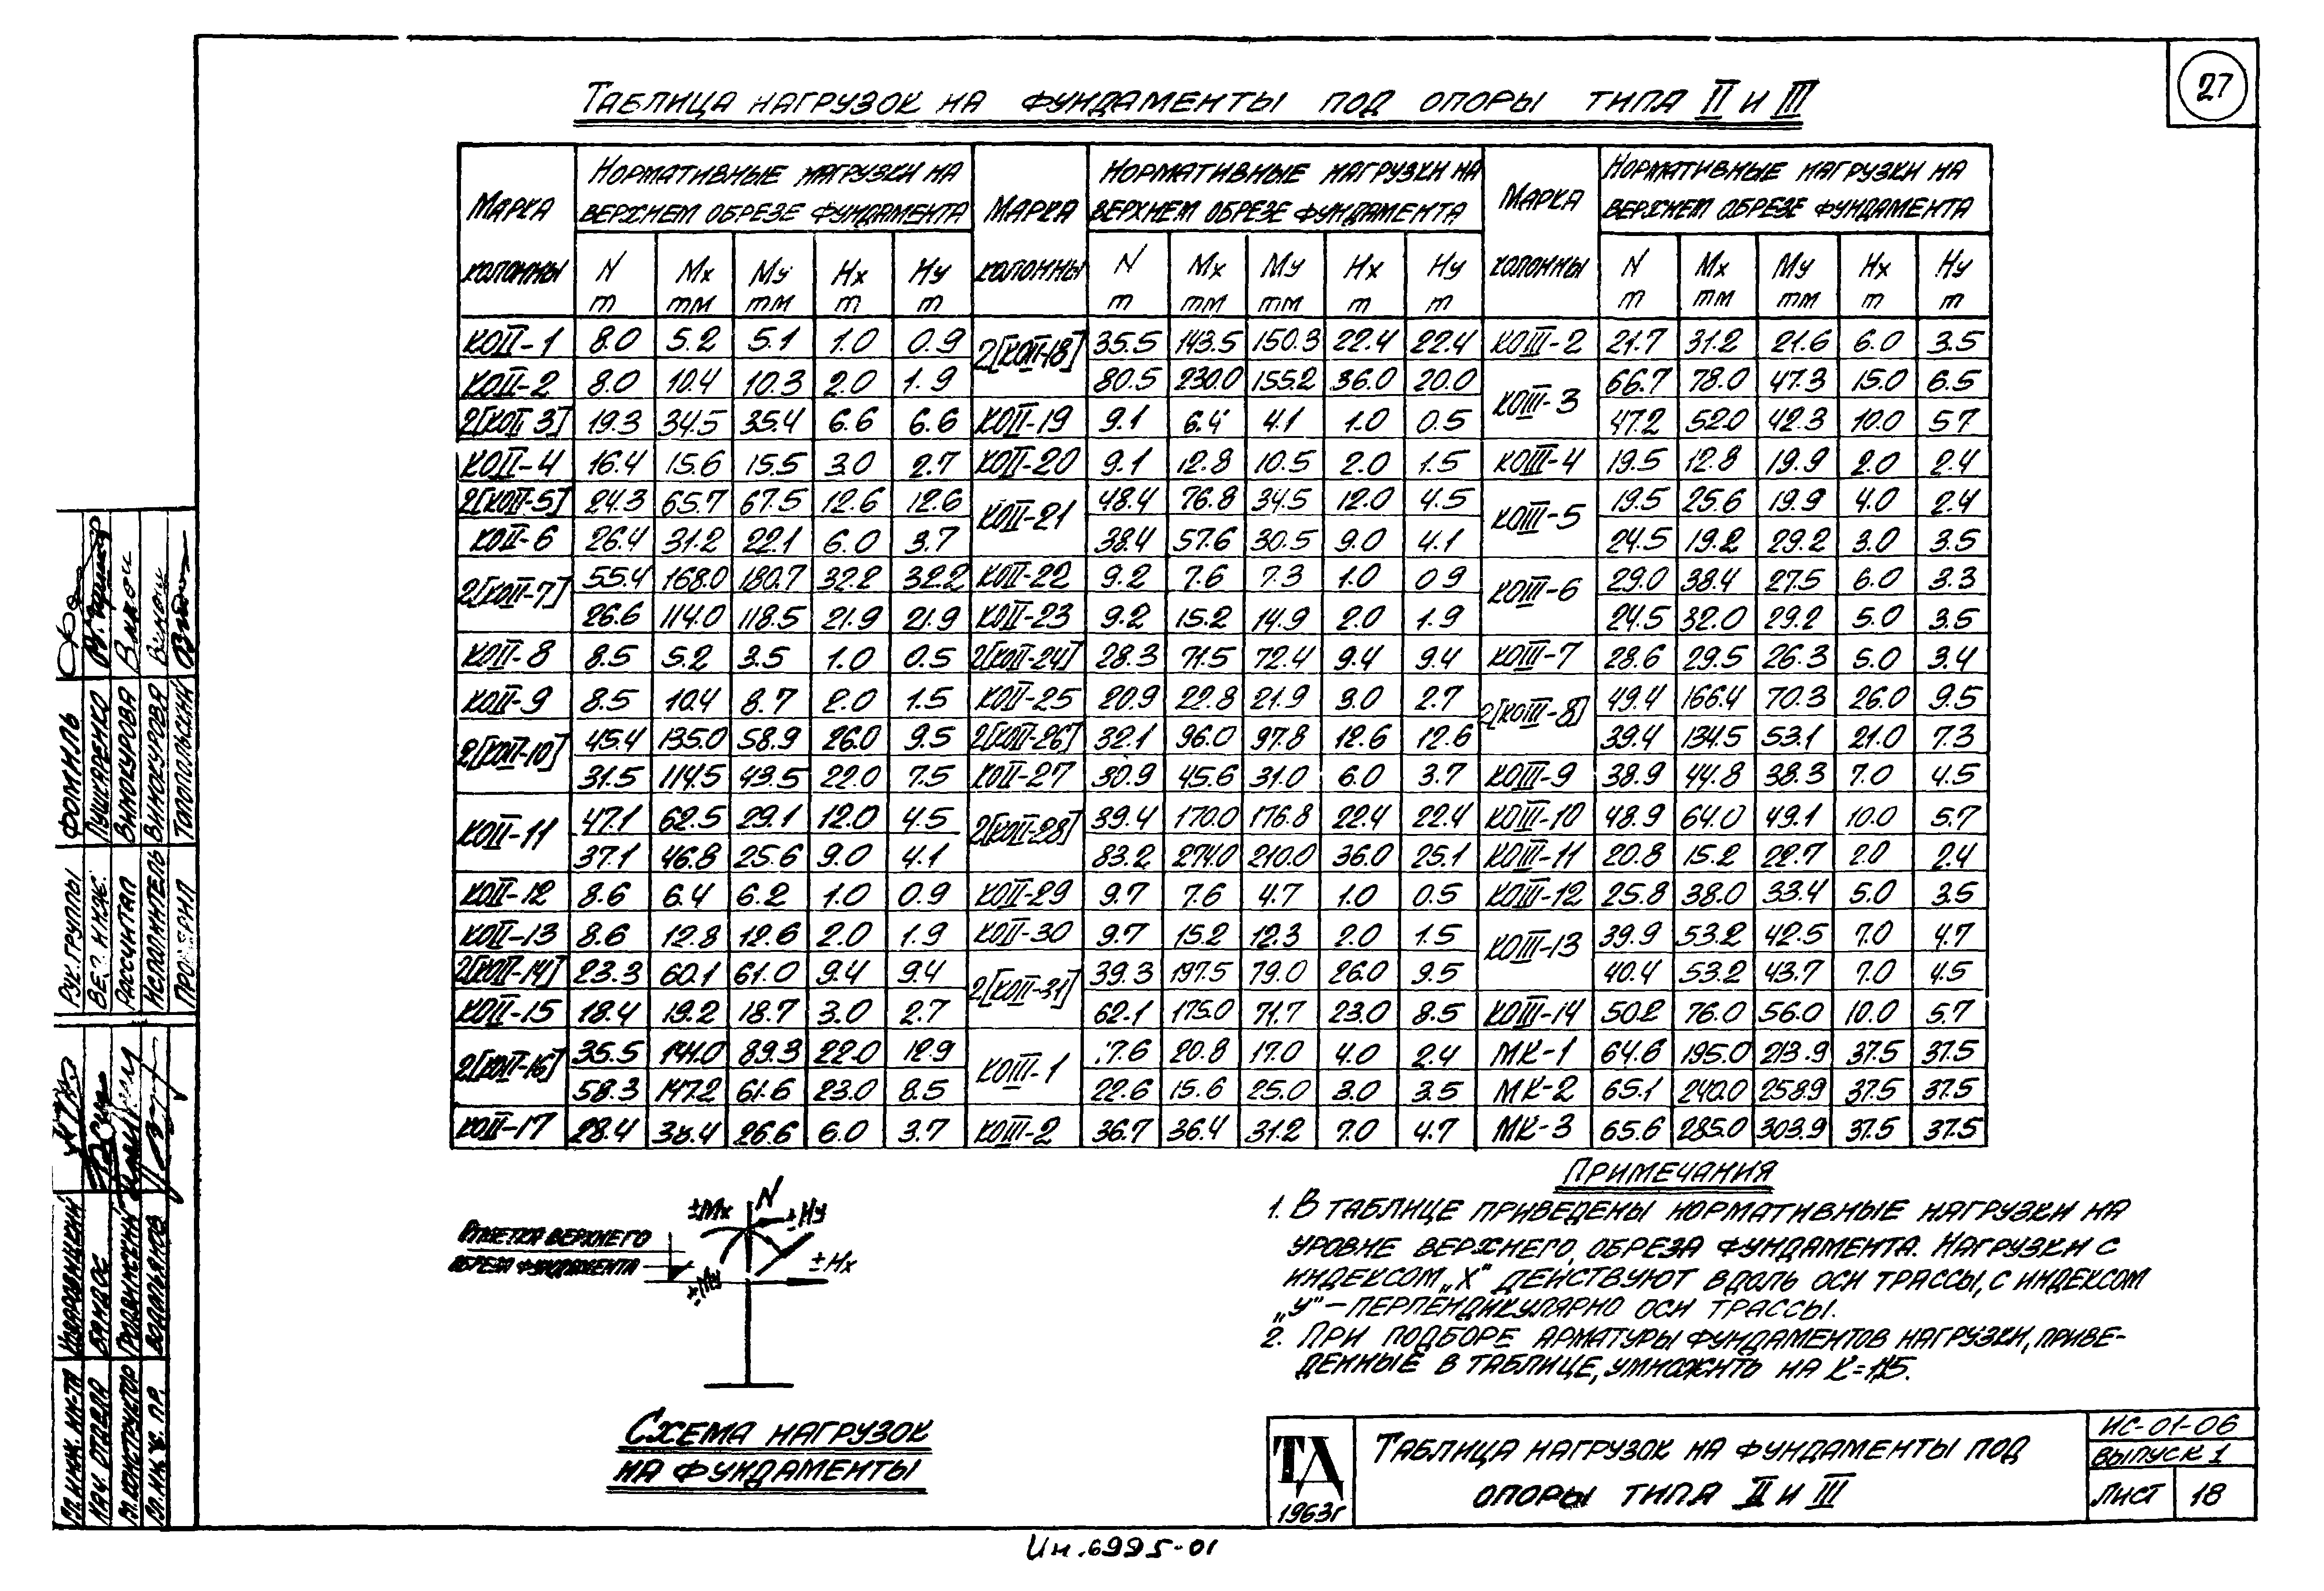 27
Таблица нагрузок на фундаменты под опоры типа II и III
Марка колонны | Нормативные нагрузки на верхнем обрезе фундамента | Марка колонны | Нормативные нагрузки на верхнем обрезе фундамента | Марка колонны | Нормативные нагрузки на верхнем обрезе фундамента
N т | Mx тм | My тм | Hx т | Hy т | N т | Mx тм | My тм | Hx т | Hy т | N т | Mx тм | My тм | Hx т | Hy т
КОII-1 8.0 5.2 5.1 1.0 0.9 | 2[КОII-18] 35.5 143.5 150.3 22.4 22.4 | КОIII-2 21.7 31.2 21.6 6.0 3.5
КОII-2 8.0 10.4 10.3 2.0 1.9 | 80.5 230.0 155.2 36.0 20.0 | КОIII-3 66.7 78.0 47.3 15.0 6.5
2[КОII-3] 19.3 34.5 35.4 6.6 6.6 | КОII-19 9.1 6.4 4.1 1.0 0.5 | 47.2 52.0 42.3 10.0 5.7
КОII-4 16.4 15.6 15.5 3.0 2.7 | КОII-20 9.1 12.8 10.5 2.0 1.5 | КОIII-4 19.5 12.8 19.9 2.0 2.4
2[КОII-5] 24.3 65.7 67.5 12.6 12.6 | КОII-21 48.4 76.8 34.5 12.0 4.5 | КОIII-5 19.5 25.6 19.9 4.0 2.4
КОII-6 26.4 31.2 22.1 6.0 3.7 | 38.4 57.6 30.5 9.0 4.1 | 24.5 19.2 29.2 3.0 3.5
2[КОII-7] 55.4 168.0 180.7 32.2 32.2 | КОII-22 9.2 7.6 7.3 1.0 0.9 | КОIII-6 29.0 38.4 27.5 6.0 3.3
26.6 114.0 118.5 21.9 21.9 | КОII-23 9.2 15.2 14.9 2.0 1.9 | 24.5 32.0 29.2 5.0 3.5
КОII-8 8.5 5.2 3.5 1.0 0.5 | 2[КОII-24] 28.3 71.5 72.4 9.4 9.4 | КОIII-7 28.6 29.5 26.3 5.0 3.4
КОII-9 8.5 10.4 8.7 2.0 1.5 | КОII-25 20.9 22.8 21.9 3.0 2.7 | 2[КОIII-8] 49.4 166.4 70.3 26.0 9.5
2[КОII-10] 45.4 135.0 58.9 26.0 9.5 | 2[КОII-26] 32.1 96.0 97.8 12.6 12.6 | 39.4 134.5 53.1 21.0 7.3
31.5 114.5 43.5 22.0 7.5 | КОII-27 30.9 45.6 31.0 6.0 3.7 | КОIII-9 38.9 44.8 38.3 7.0 4.5
КОII-11 47.1 62.5 29.1 12.0 4.5 | 2[КОII-28] 39.4 170.0 176.8 22.4 22.4 | КОIII-10 48.9 64.0 49.1 10.0 5.7
37.1 46.8 25.6 9.0 4.1 | 83.2 274.0 210.0 36.0 25.1 | КОIII-11 20.8 15.2 22.7 2.0 2.4
КОII-12 8.6 6.4 6.2 1.0 0.9 | КОII-29 9.7 7.6 4.7 1.0 0.5 | КОIII-12 25.8 38.0 33.4 5.0 3.5
КОII-13 8.6 12.8 12.6 2.0 1.9 | КОII-30 9.7 15.2 12.3 2.0 1.5 | КОIII-13 39.9 53.2 42.5 7.0 4.7
2[КОII-14] 23.3 60.1 61.0 9.4 9.4 | 2[КОII-31] 39.3 197.5 79.0 26.0 9.5 | 40.4 53.2 43.7 7.0 4.5
КОII-15 18.4 19.2 18.7 3.0 2.7 | 62.1 175.0 71.7 23.0 8.5 | КОIII-14 50.2 76.0 56.0 10.0 5.7
2[КОII-16] 35.5 141.0 89.3 22.0 12.9 | КОIII-1 7.6 20.8 17.0 4.0 2.4 | МК-1 64.6 195.0 213.9 37.5 37.5
58.3 147.2 61.6 23.0 8.5 | 22.6 15.6 25.0 3.0 3.5 | МК-2 65.1 240.0 258.9 37.5 37.5
КОII-17 28.4 38.4 26.6 6.0 3.7 | КОIII-2 36.7 36.4 31.2 7.0 4.7 | МК-3 65.6 285.0 303.9 37.5 37.5
Отметка верхнего
обреза фундамента
±Mx N ±Hy
±My ±Hx
Схема нагрузок
на фундаменты
Примечания
1. В таблице приведены нормативные нагрузки на
уровне верхнего обреза фундамента. Нагрузки с
индексом „X" действуют вдоль оси трассы, с индексом
„У" – перпендикулярно оси трассы.
2. При подборе арматуры фундаментов нагрузки, приве-
денные в таблице, умножить на К=1,15.
ТД
1963г
Таблица нагрузок на фундаменты под
опоры типа II и III
ИС-01-06
Выпуск 1
Лист 18
Ин.6995-01
Рук. группы Фомиль
Вед. инж. Пушкаренко
Рассчитал Винокурова
Исполнитель Винокурова
Проверил Топопольский
Гл. инж. ин-та
Нач. отдела Брндое
Гл. конструктор
Гл. инж. пр.